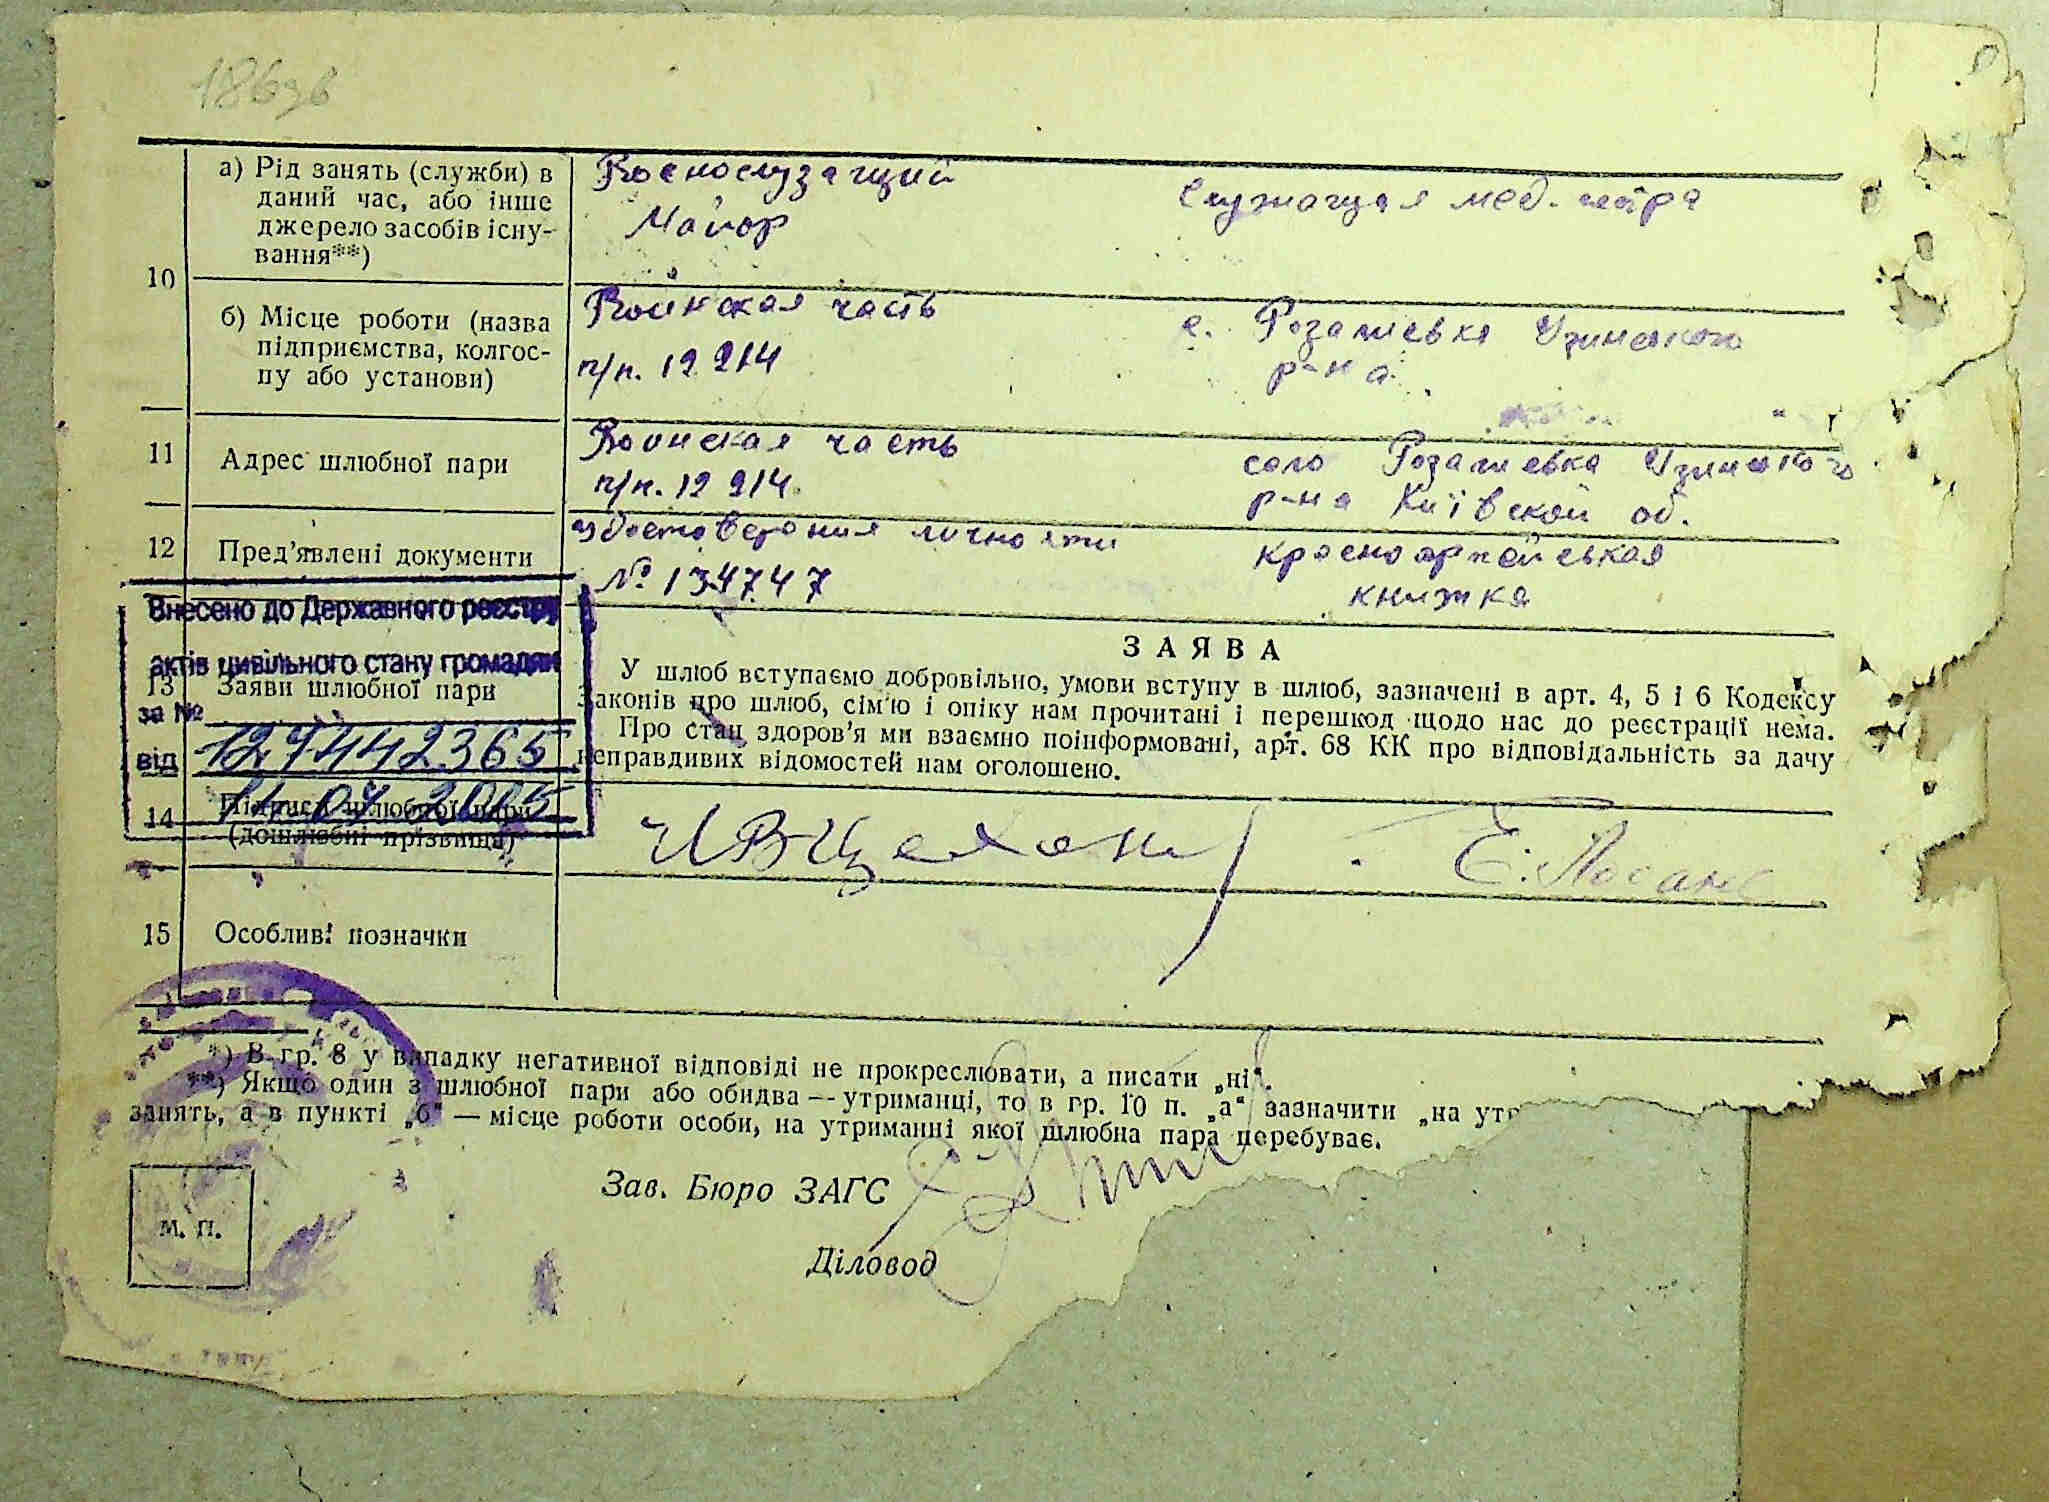 186зв
а) Рід занять (служби) в даний час, або інше джерело засобів існування**)
Военослузащий
Майор
Служащая мед. сестра
10
б) Місце роботи (назва підприємства, колгоспу або установи)
Воинская часть
п/п. 12214
с. Розалиевка Узинского
р-на
11
Адрес шлюбної пари
Воинская часть
п/п. 12214.
село Розалиевка Узинского
р-на Київской об.
12
Пред'явлені документи
удостоверения личности
№ 134747
красноармейськая
книжка
Внесено до Державного реєстру
актів цивільного стану громадян
за №
127442365
від
13
Заяви шлюбної пари
ЗАЯВА
У шлюб вступаємо добровільно, умови вступу в шлюб, зазначені в арт. 4, 5 і 6 Кодексу
Законів про шлюб, сім'ю і опіку нам прочитані і перешкод щодо нас до реєстрації нема.
Про стан здоров'я ми взаємно поінформовані, арт. 68 КК про відповідальність за дачу
неправдивих відомостей нам оголошено.
14
Підписи шлюбної пари
(дошлюбні прізвища)
15
Особливі позначки
*) В гр. 8 у випадку негативної відповіді не прокреслювати, а писати „ні“.
**) Якщо один з шлюбної пари або обидва — утриманці, то в гр. 10 п. „а“ зазначити „на утр
занять, а в пункті „б“ — місце роботи особи, на утриманні якої шлюбна пара перебуває.
Зав. Бюро ЗАГС
М. П.
Діловод